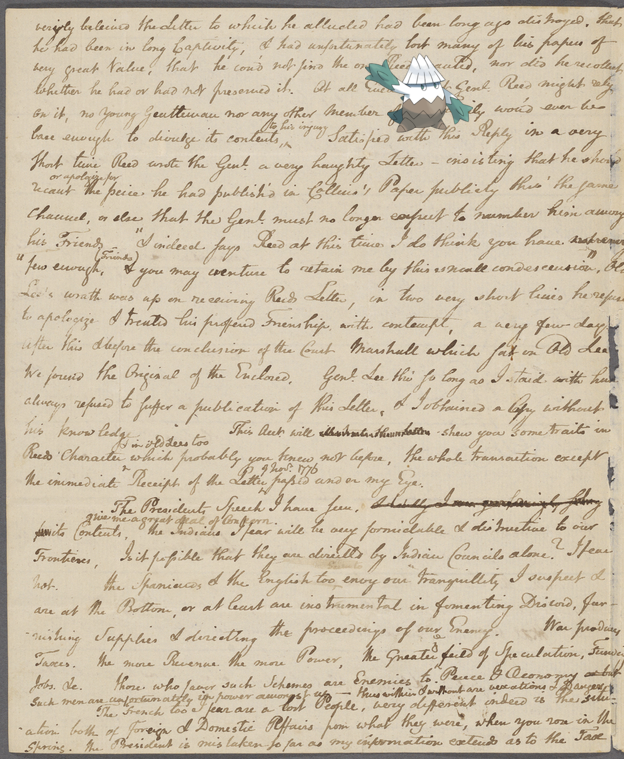 verily believed the Letter to which he alluded had been long ago distroyed. that
he had been in long Captivity, & had unfortunately lost many of his papers of
very great Value, that he cou'd not find the one nor did he recollect
whether he had or had not preserved it. at all Genl. Reed might rely
on it, no young Gentleman nor any other Member wou'd ever be
base enough to divulge its contents to his injury. Satisfied with this Reply in a very
short time Reed wrote the Genl. a very haughty Letter – insisting that he shou'd
recant or apologize for the peice he had publish'd in Collins's Paper publicly thro' the same
Channel, or else that the Genl. must no longer expect to number him among
his Friends "I indeed says Reed at this time I do think you have
"few enough, (Friends) & you may venture to retain me by this small condescension",
Lee's wrath was up on receiving Reeds Letter, in two very short lines he refused
to apologize & treated his proffered Frienship with contempt, a very few days
after this & before the conclusion of the Court Marshall which sat on Old Lee
We found the Original of the Enclosed. Genl. Lee this so long as I staid with him
always refused to suffer a publication of this Letter, & I obtained a Copy without
his knowledge. This Acct. will shew you some traits in
Reeds & in old Lees too Character which probably you knew not before, the whole transaction except
the immediate Receipt of the Letter p 2 Nov. 1776 passed under my Eye.
The Presidents Speech I have seen,
its Contents give me a great deal of concern. the Indians I fear will be very formidable & distructive to our
Frontiers, Is it possible that they are directed by Indian Councils alone? I fear
not. the Spaniards & the English too envy our tranquility I suspect &
are at the Bottom, or at least are instrumental in fomenting Discord, fur-
-nishing Supplies & directing the proceedings of our Enemy. War produces
Taxes. the more Revenue the more Power, the Greater field of Speculation,
Jobs &c. those who favor such Schemes are Enemies to Peace & Oeconomy
such men are unfortunately in power amongst us – thus within & without are
The French too I fear are a lost People, very different indeed is the situ-
-ation both of foreign & Domestic Affairs from what they were, when you was in the
Spring. the President is mistaken so far as my information extends as to the